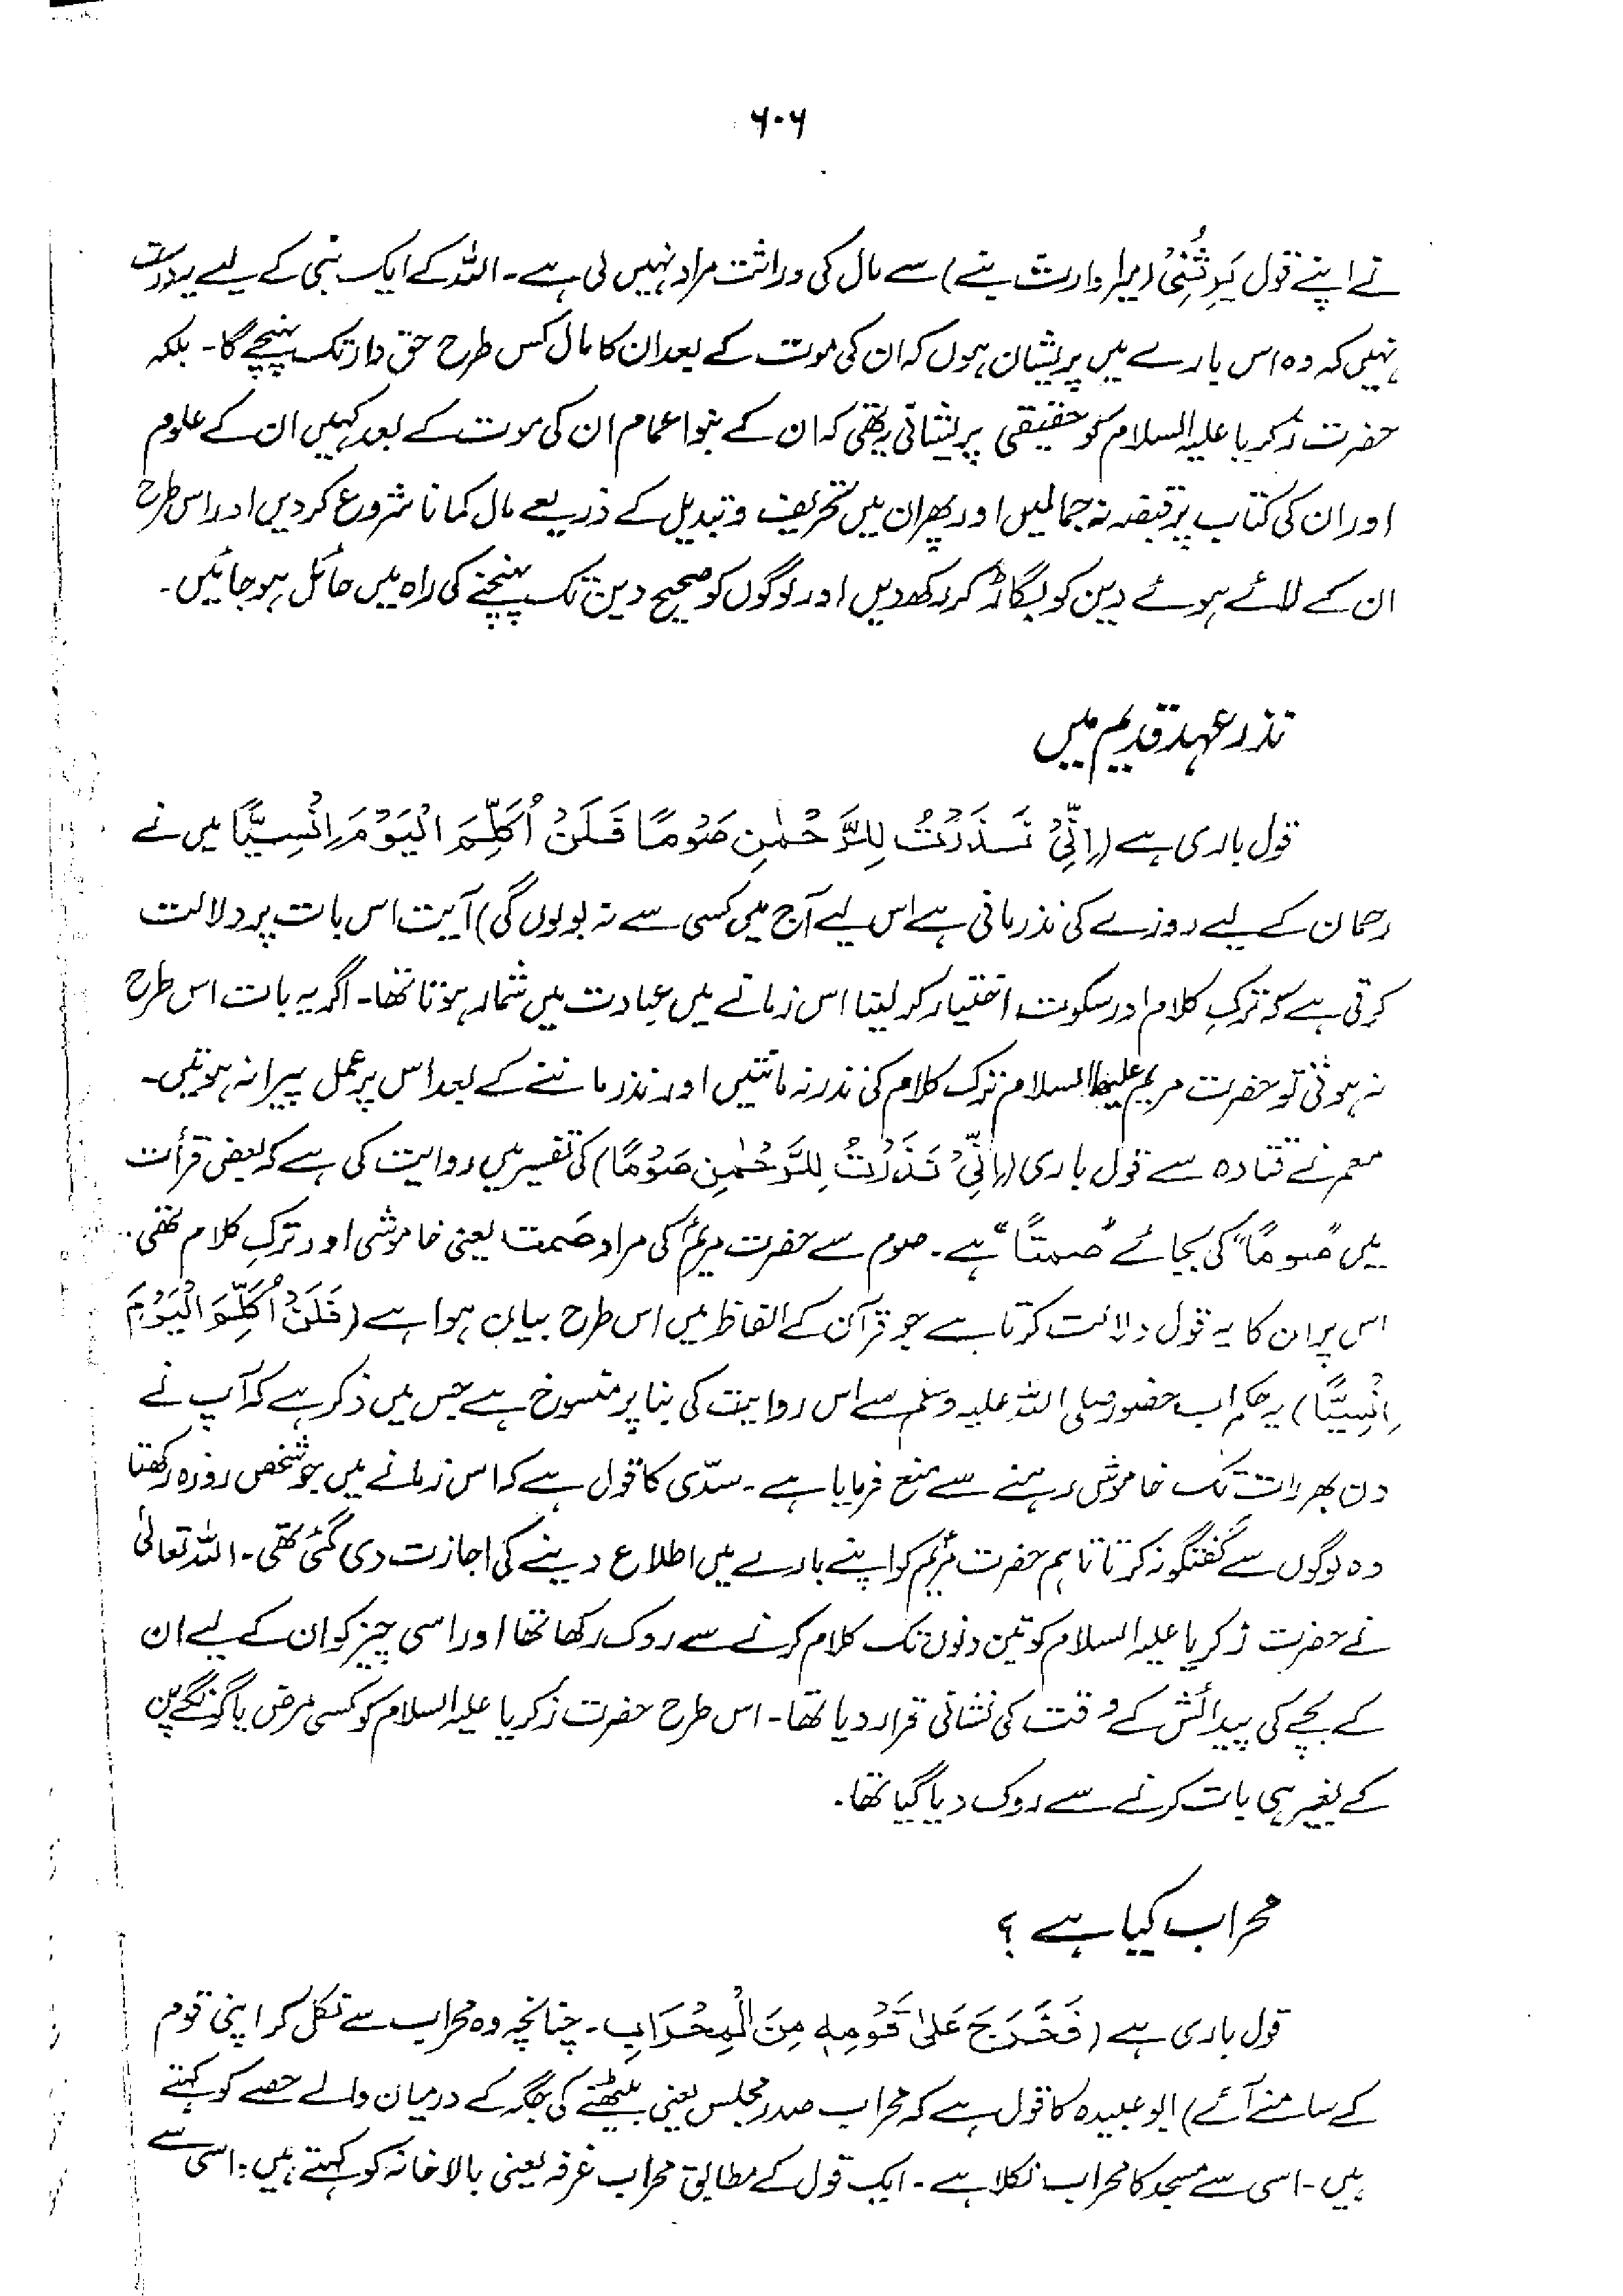 ۶۰۶
نے اپنے قول یَرِثُنِیْ (میرا وارث بنے) سے مال کی وراثت مراد نہیں لی ہے۔ اللہ کے ایک نبی کے لیے یہ درست
نہیں کہ وہ اس بارے میں پریشان ہوں کہ ان کی موت کے بعد ان کا مال کس طرح حق دار تک پہنچے گا۔ بلکہ
حضرت زکریا علیہ السلام کو حقیقی پریشانی یہ تھی کہ ان کے بنو اعمام ان کی موت کے بعد کہیں ان کے علوم
اور ان کی کتاب پر قبضہ نہ جمالیں اور پھر ان میں تحریف و تبدیل کے ذریعے مال کمانا شروع کر دیں اور اس طرح
ان کے لائے ہوئے دین کو بگاڑ کر رکھ دیں اور لوگوں کو صحیح دین تک پہنچنے کی راہ میں حائل ہو جائیں۔
نذر عہد قدیم میں
قول باری ہے (اِنِّیْ نَذَرْتُ لِلرَّحْمٰنِ صَوْمًا فَلَنْ اُکَلِّمَ الْیَوْمَ اِنْسِیًّا میں نے
رحمان کے لیے روزے کی نذر مانی ہے اس لیے آج میں کسی سے نہ بولوں گی) آیت اس بات پر دلالت
کرتی ہے کہ ترکِ کلام اور سکوت اختیار کر لینا اس زمانے میں عبادت میں شمار ہوتا تھا۔ اگر یہ بات اس طرح
نہ ہوتی تو حضرت مریم علیہا السلام ترک کلام کی نذر نہ مانتیں اور نذر ماننے کے بعد اس پر عمل پیرا نہ ہوتیں۔
معمر نے قتادہ سے قول باری (اِنِّیْ نَذَرْتُ لِلرَّحْمٰنِ صَوْمًا) کی تفسیر میں روایت کی ہے کہ بعض قرأت
میں "صوماً" کی بجائے "صمتاً" ہے۔ صوم سے حضرت مریمؑ کی مراد صَمت یعنی خاموشی اور ترکِ کلام تھی۔
اس پر ان کا یہ قول دلالت کرتا ہے جو قرآن کے الفاظ میں اس طرح بیان ہوا ہے (فَلَنْ اُکَلِّمَ الْیَوْمَ
اِنْسِیًّا) یہ حکم اب حضور صلی اللہ علیہ وسلم سے اس روایت کی بنا پر منسوخ ہے جس میں ذکر ہے کہ آپ نے
دن بھر رات تک خاموش رہنے سے منع فرمایا ہے۔ سدّی کا قول ہے کہ اس زمانے میں جو شخص روزہ رکھتا
وہ لوگوں سے گفتگو نہ کرتا تاہم حضرت مریمؑ کو اپنے بارے میں اطلاع دینے کی اجازت دی گئی تھی۔ اللہ تعالیٰ
نے حضرت زکریا علیہ السلام کو تین دنوں تک کلام کرنے سے روک رکھا تھا اور اسی چیز کو ان کے لیے ان
کے بچے کی پیدائش کے وقت کی نشانی قرار دیا تھا۔ اس طرح حضرت زکریا علیہ السلام کو کسی مرض یا گونگے پن
کے بغیر ہی بات کرنے سے روک دیا گیا تھا۔
محراب کیا ہے ؟
قول باری ہے (فَخَرَجَ عَلٰی قَوْمِہٖ مِنَ الْمِحْرَابِ۔ چنانچہ وہ محراب سے نکل کر اپنی قوم
کے سامنے آئے) ابو عبیدہ کا قول ہے کہ محراب صدر مجلس یعنی بیٹھنے کی جگہ کے درمیان والے حصے کو کہتے
ہیں۔ اسی سے مسجد کا محراب نکلا ہے۔ ایک قول کے مطابق محراب غرفہ یعنی بالا خانہ کو کہتے ہیں، اسی سے